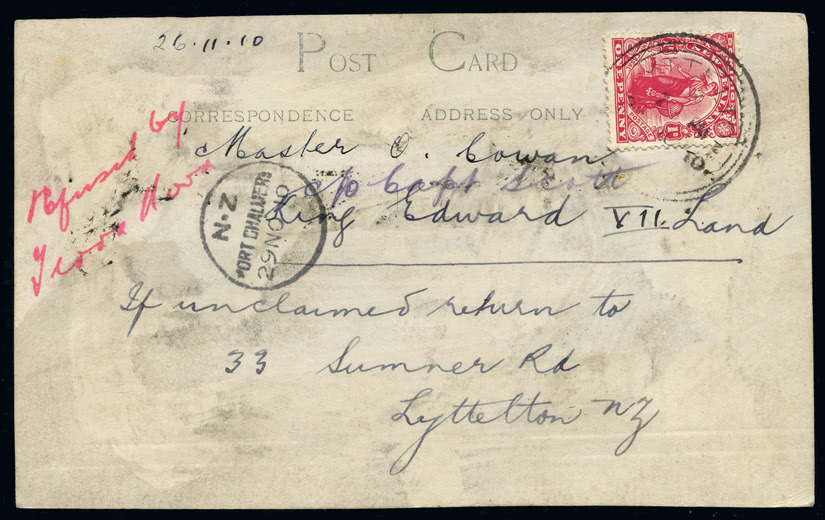 26.11.10
POST CARD
CORRESPONDENCE ADDRESS ONLY
Master C. Cowan
c/o Capt Scott
King Edward VII. Land
Refused by
Terra Nova
N.Z
PORT CHALMERS
29 NO 10
ONE PENNY
POSTAGE
If unclaimed return to
33 Sumner Rd
Lyttelton NZ